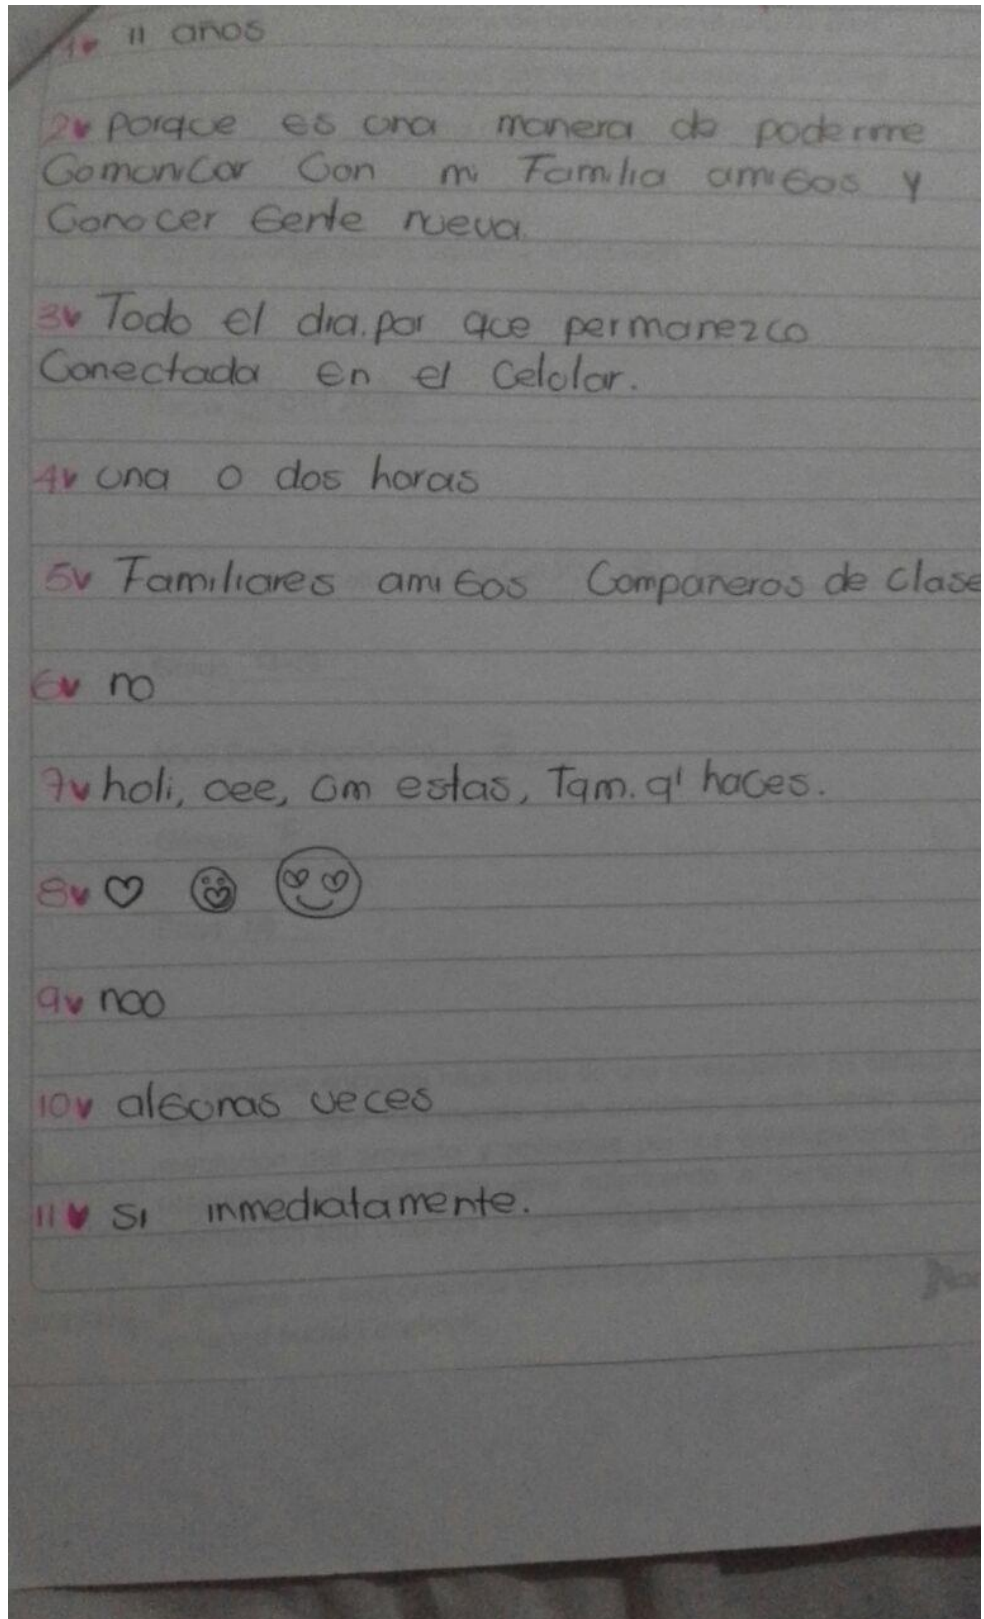 1♥ 11 años
2♥ porque es una manera de poderme
Comunicar Con mi Familia amigos y
Conocer Gente nueva.
3♥ Todo el dia. por que permanezco
Conectada en el Celular.
4♥ una o dos horas
5♥ Familiares amigos Compañeros de Clase
6♥ no
7♥ holi, cee, cm estas, Tqm. q' haces.
8♥ ♡
9♥ noo
10♥ algunas veces
11♥ si inmediatamente.